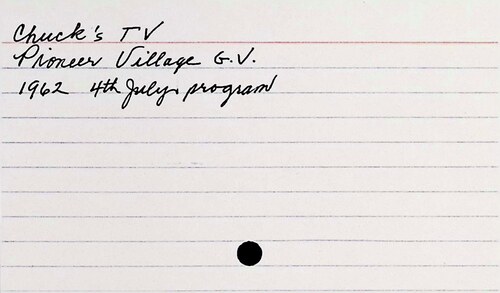 Chuck's TV
Pioneer Village G.V.
1962 4th July program